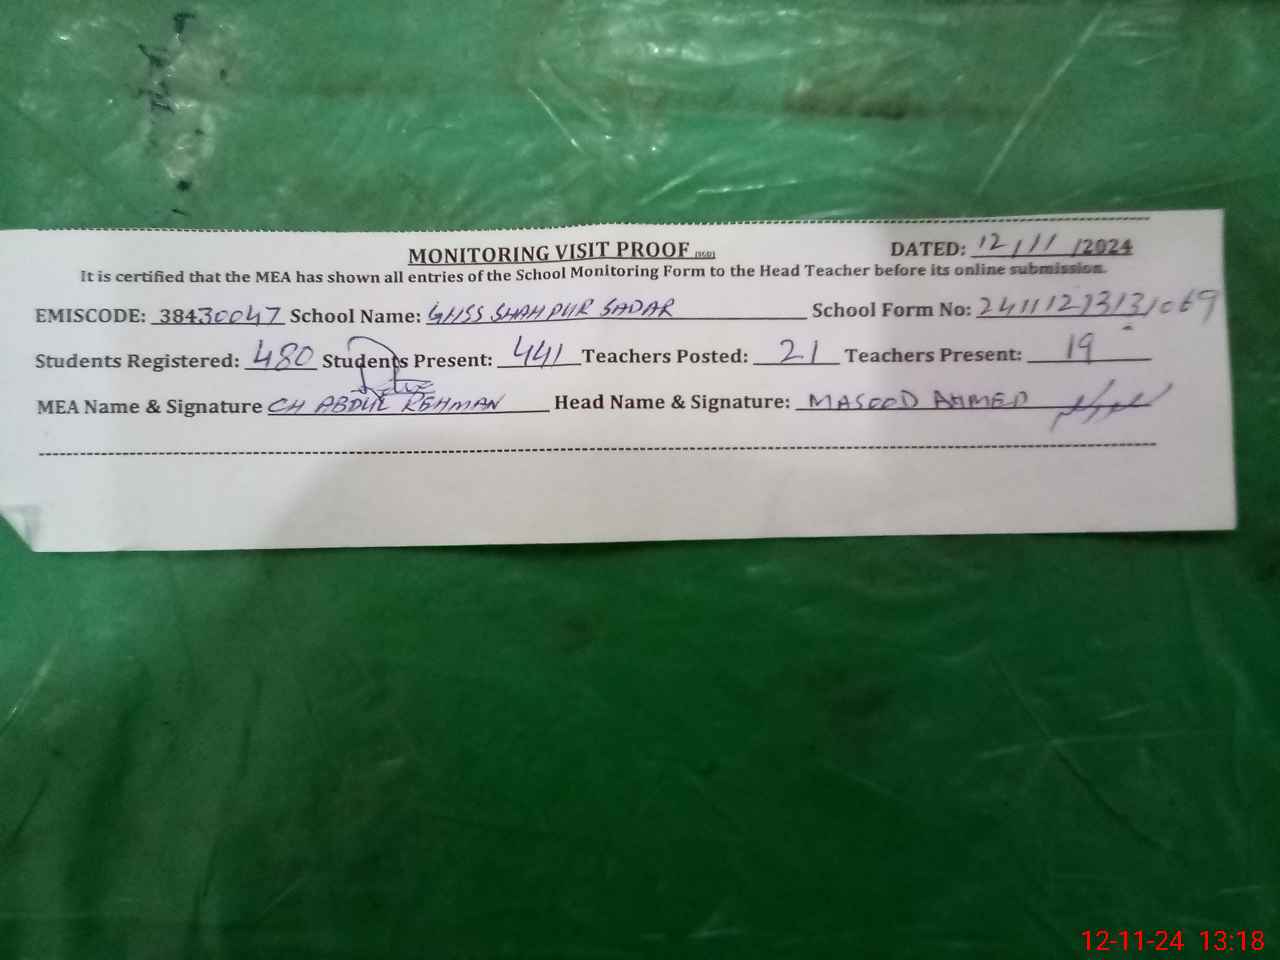 MONITORING VISIT PROOF DATED: 12/11/2024
It is certified that the MEA has shown all entries of the School Monitoring Form to the Head Teacher before its online submission.
EMISCODE: 38430047 School Name: GHSS SHAHPUR SADAR School Form No: 24111213131069
Students Registered: 480 Students Present: 441 Teachers Posted: 21 Teachers Present: 19
MEA Name & Signature CH ABDUL REHMAN Head Name & Signature: MASOOD AHMED
12-11-24 13:18